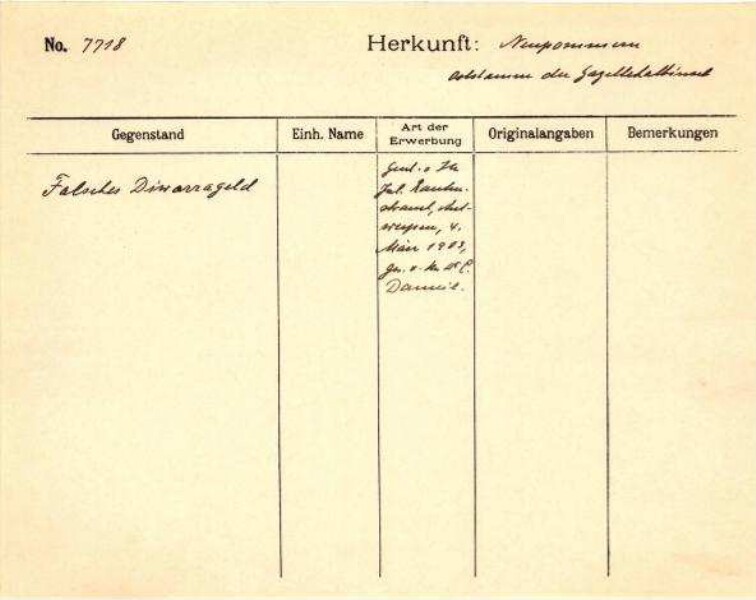 No. 7718
Herkunft: Neupommern
der Gazellehalbinsel
Gegenstand
Einh. Name
Art der
Erwerbung
Originalangaben
Bemerkungen
Falsches Diwarrageld
Jul. Rauten-
strauch, Ant-
werpen, 4.
März 1903,
ges. v.